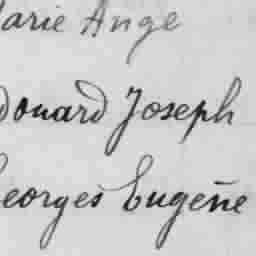 arie Ange
douard Joseph
eorges Eugène